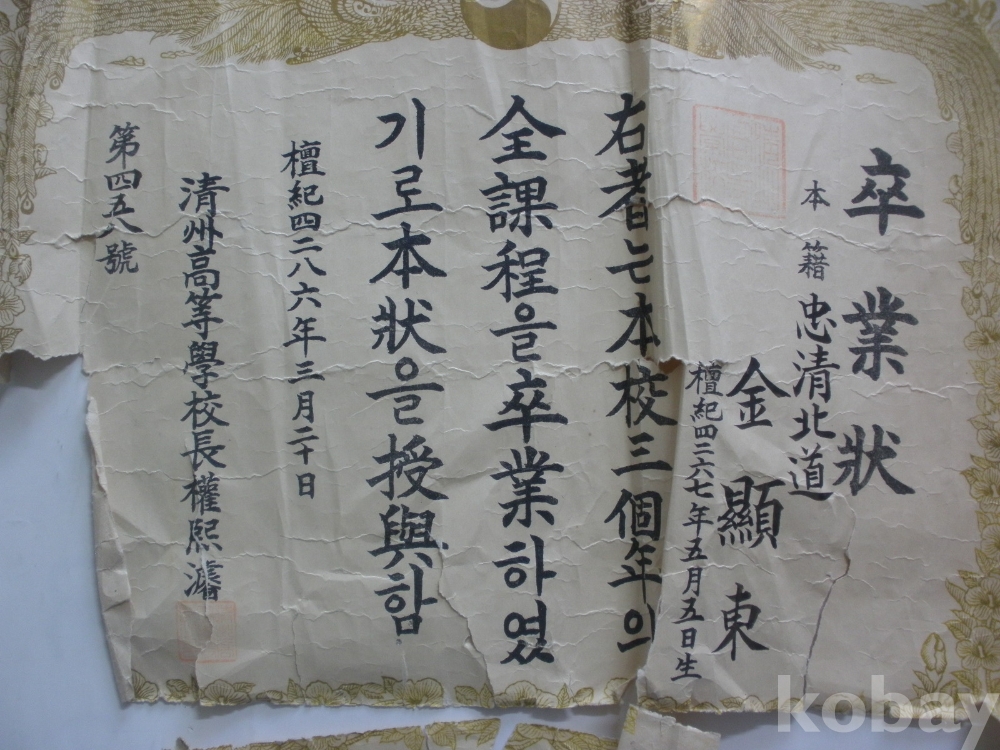 卒業狀
本籍 忠清北道
金顯東
檀紀四二六七年五月五日生
右者는本校三個年의
全課程을卒業하였
기로本狀을授與함
檀紀四二八六年三月二十日
清州高等學校長權熙濬
第四五八號
kobay